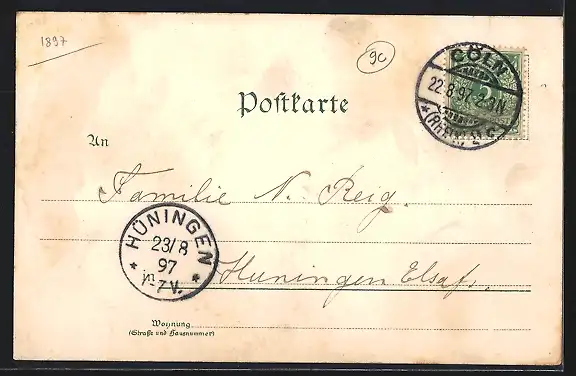 1897
9c
CÖLN
22.8.97.2-3N
* (RHEIN)
5
Postkarte
An
Familie N. Reig.
HÜNINGEN
23/8
97
6-7V.
* *
Huningen Elsaß.
Wohnung
(Straße und Hausnummer)